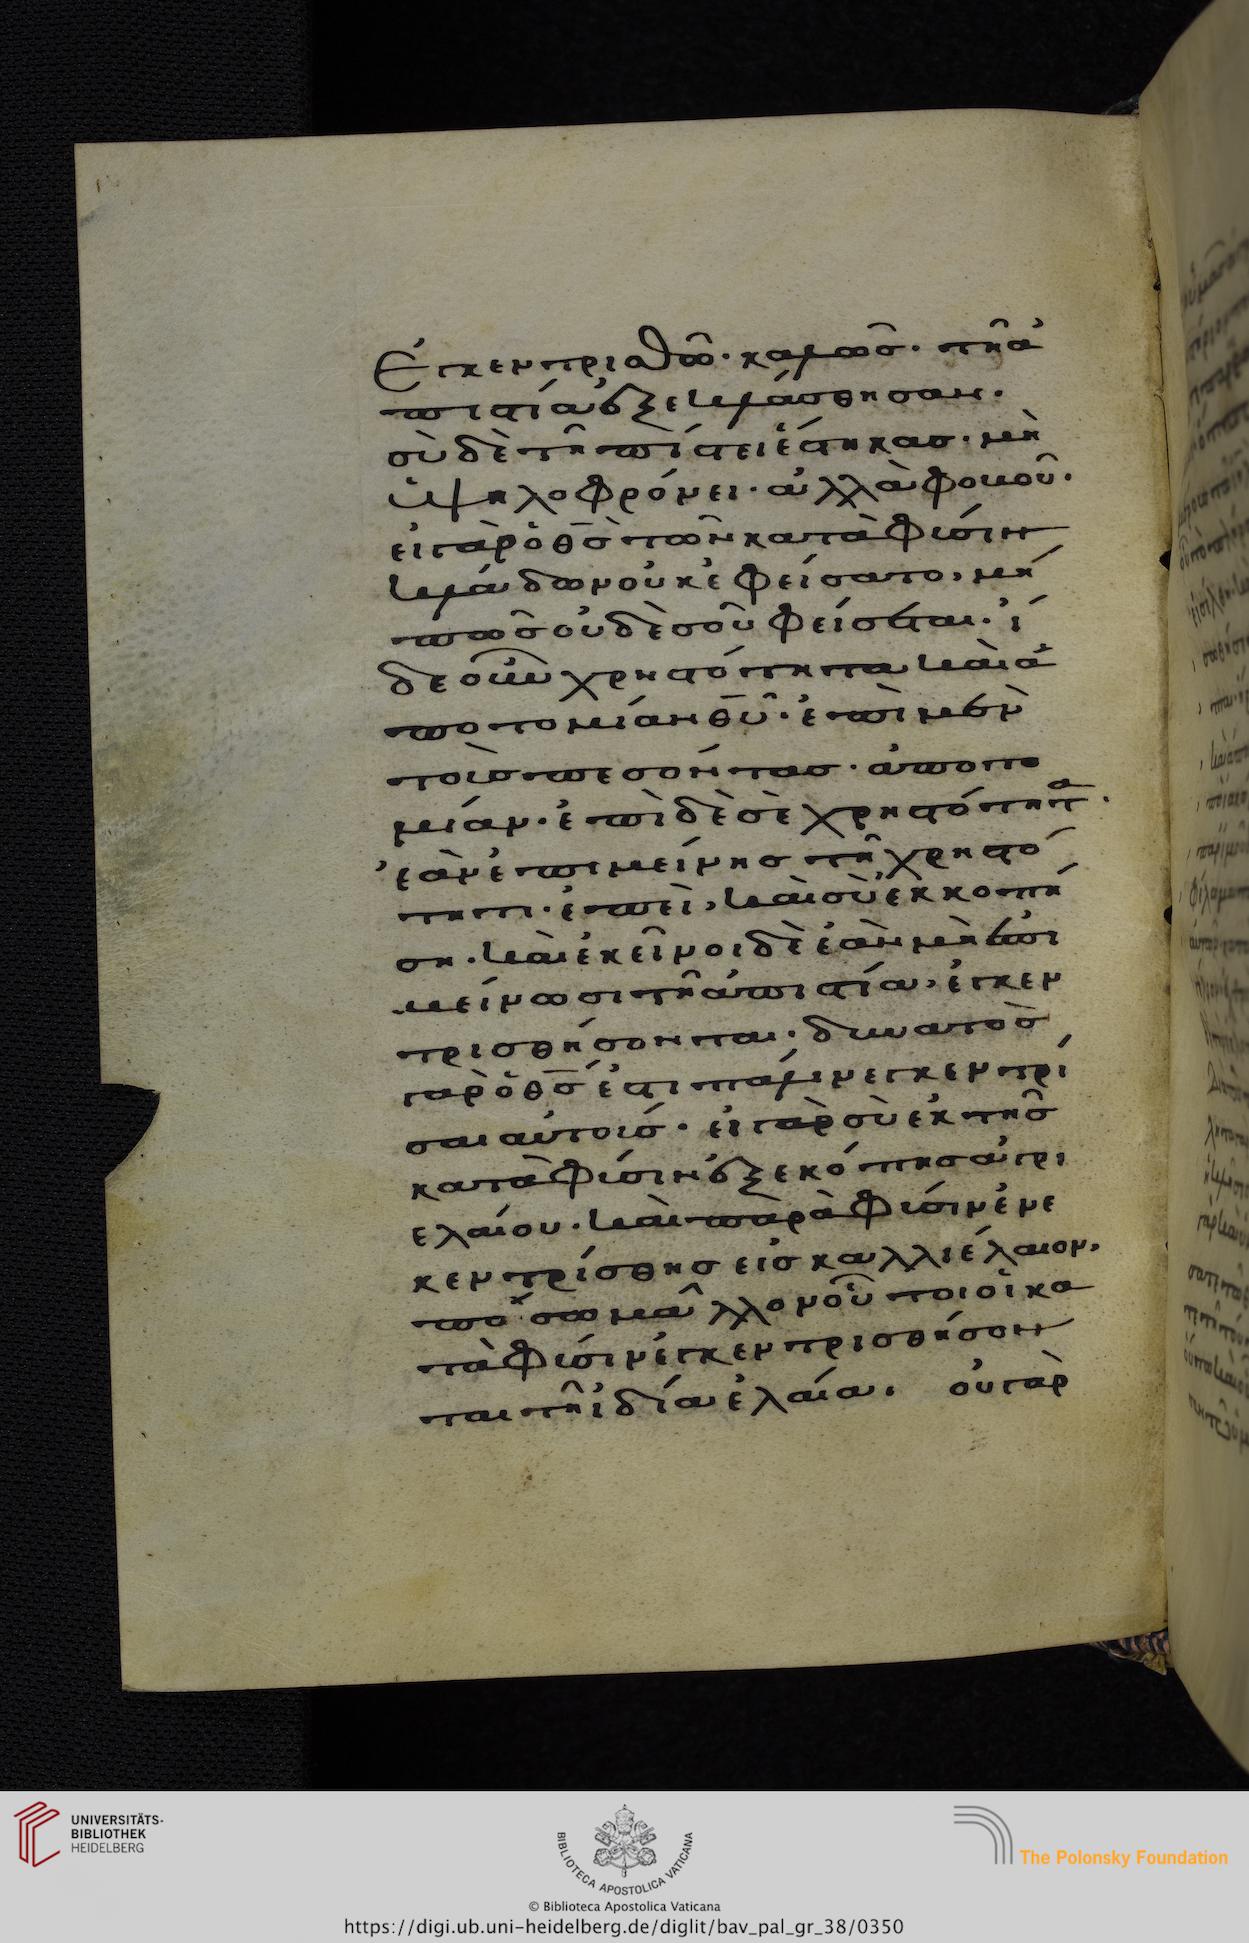 Ἐγκεντριαθῶ· καλῶσ· τῆ ἀ
πιστία ἐξεκλάσθησαν·
σὺ δὲ τῆ πίστει ἕστηκασ· μὴ
ὑψηλοφρόνει· ἀλλὰ φοβοῦ·
εἰ γὰρ ὁ θ̅σ̅ τῶν κατὰ φύσιν
κλάδων οὐκ ἐφείσατο, μή
πωσ οὐδὲ σοῦ φείσεται· ἴ
δε οὖν χρηστότητα καὶ ἀ
ποτομίαν θ̅υ̅· ἐπὶ μὲν
τοὺσ πεσόντασ· ἀποτο
μίαν· ἐπὶ δὲ σὲ χρηστότητα·
ἐὰν ἐπιμείνησ τῆ χρηστό
τητι· ἐπεὶ, καὶ σὺ ἐκκοπή
ση· καὶ ἐκεῖνοι δὲ ἐὰν μὴ ἐπι
μείνωσι τῆ ἀπιστία, ἐγκεν
τρισθήσονται· δυνατὸσ
γὰρ ὁ θ̅σ̅ ἐστι πάλιν ἐγκεντρί
σαι αὐτούσ· εἰ γὰρ σὺ ἐκ τῆσ
κατὰ φύσιν ἐξεκόπησ ἀγρι
ελαίου· καὶ παρὰ φύσιν ἐνε
κεντρίσθησ εἰσ καλλιέλαιον,
πόσω μᾶλλον οὗτοι οἱ κα
τὰ φύσιν ἐγκεντρισθήσον
ται τῆ ἰδία ἐλαία· οὐ γὰρ
UNIVERSITÄTS-
BIBLIOTHEK
HEIDELBERG
BIBLIOTECA APOSTOLICA VATICANA
The Polonsky Foundation
© Biblioteca Apostolica Vaticana
https://digi.ub.uni-heidelberg.de/diglit/bav_pal_gr_38/0350